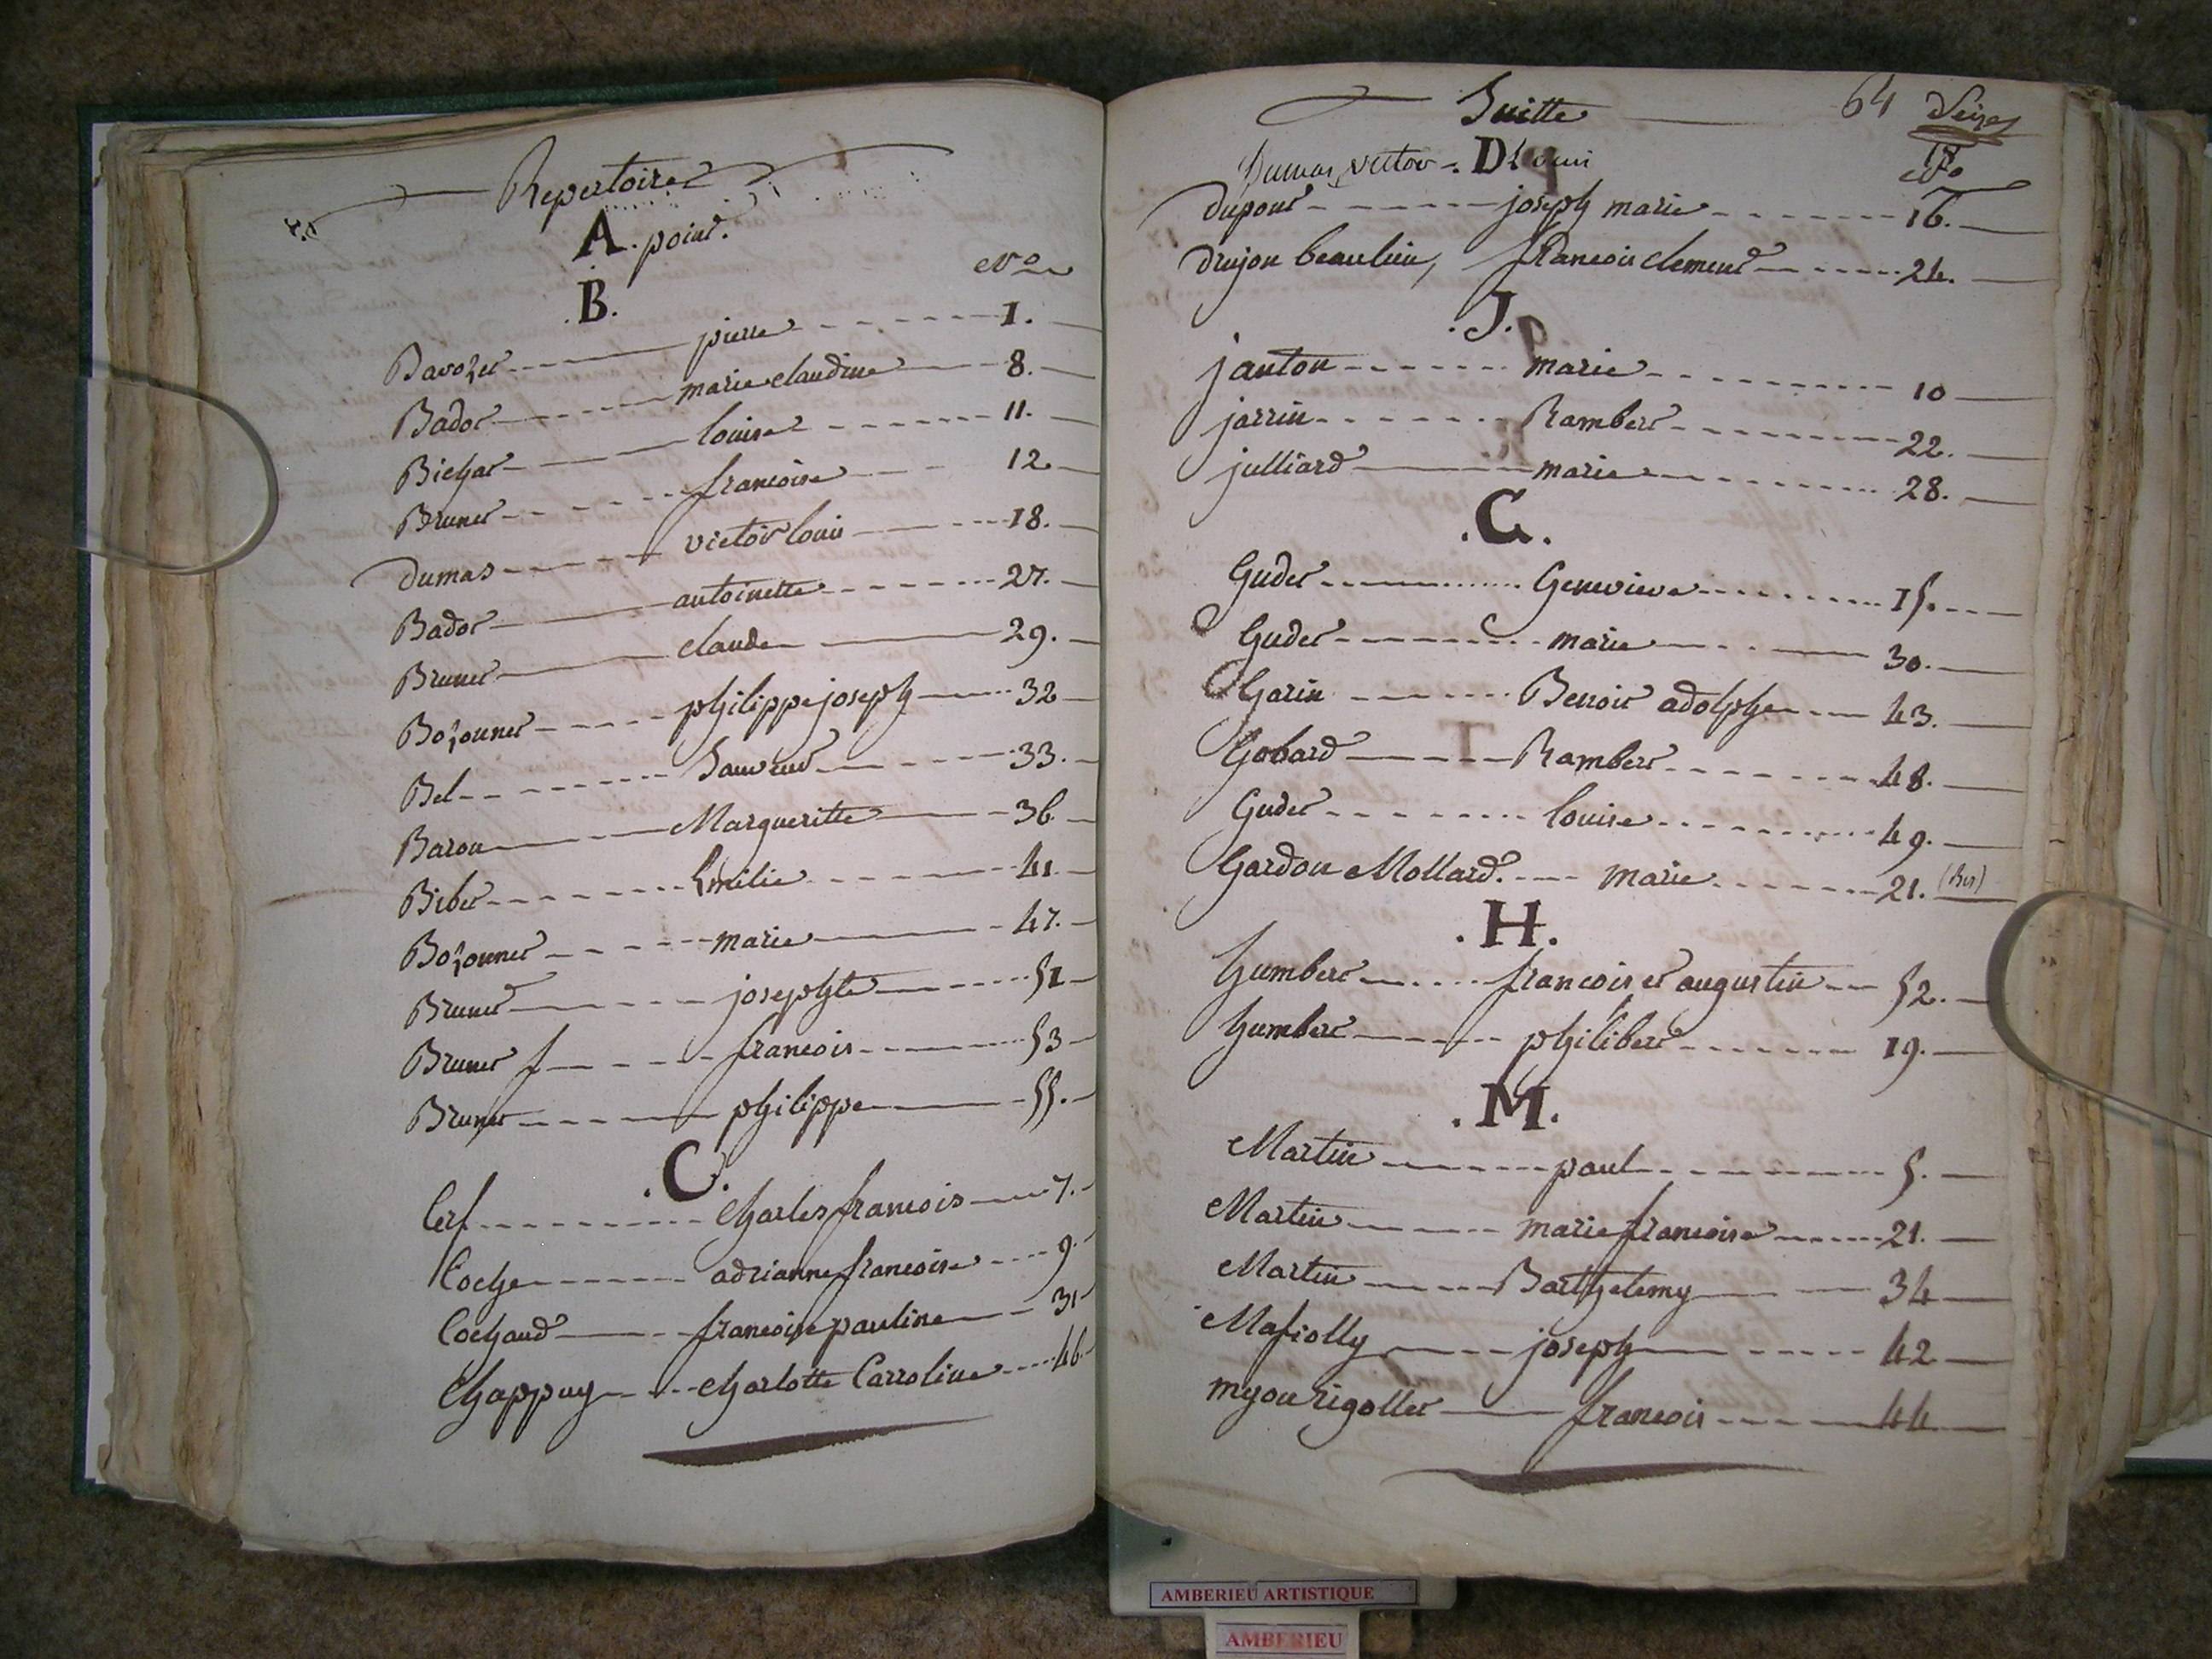 Repertoire
A. point.
N.o
.B.
Bavozet pierre 1.
Bador marie claudine 8.
Bichat louise 11.
Brunet francoise 12.
dumas victor louis 18.
Bador antoinette 27.
Brunet claude 29.
Bozonnet philippe joseph 32
Bel 33.
Baron Margueritte 36
Bibet Emilie 41.
Bozonnet marie 47.
Brunet josephte 51
Brunet f francois 53
Brunet philippe 55.
.C.
Cerf charles francois 7.
Coche adrianne francoise 9.
Cochaud francoise pauline 31
Chappuy charlotte Carroline 46.
Suitte 64 Seize
Dumas victor .D. Louis 18
No
dupont joseph marie 16.
drujon beaulieu, francois clement 24.
.J.
janton marie 10
jarrin Rambert 22.
julliard marie 28.
.G.
Gudet Genevieve 15.
Gudet marie 30.
Garin Benoit adolphe 43.
Gobard Rambert 48.
Gudet louise 49.
Gardon Mollard. marie 21. (bis)
.H.
humbert francois et augustin 52.
humbert philibert 19.
.M.
Martin paul 5.
Martin marie francoise 21.
Martin Barthelemy 34
Mafiolly joseph 42
myon rigollet francois 44
AMBERIEU ARTISTIQUE
AMBERIEU